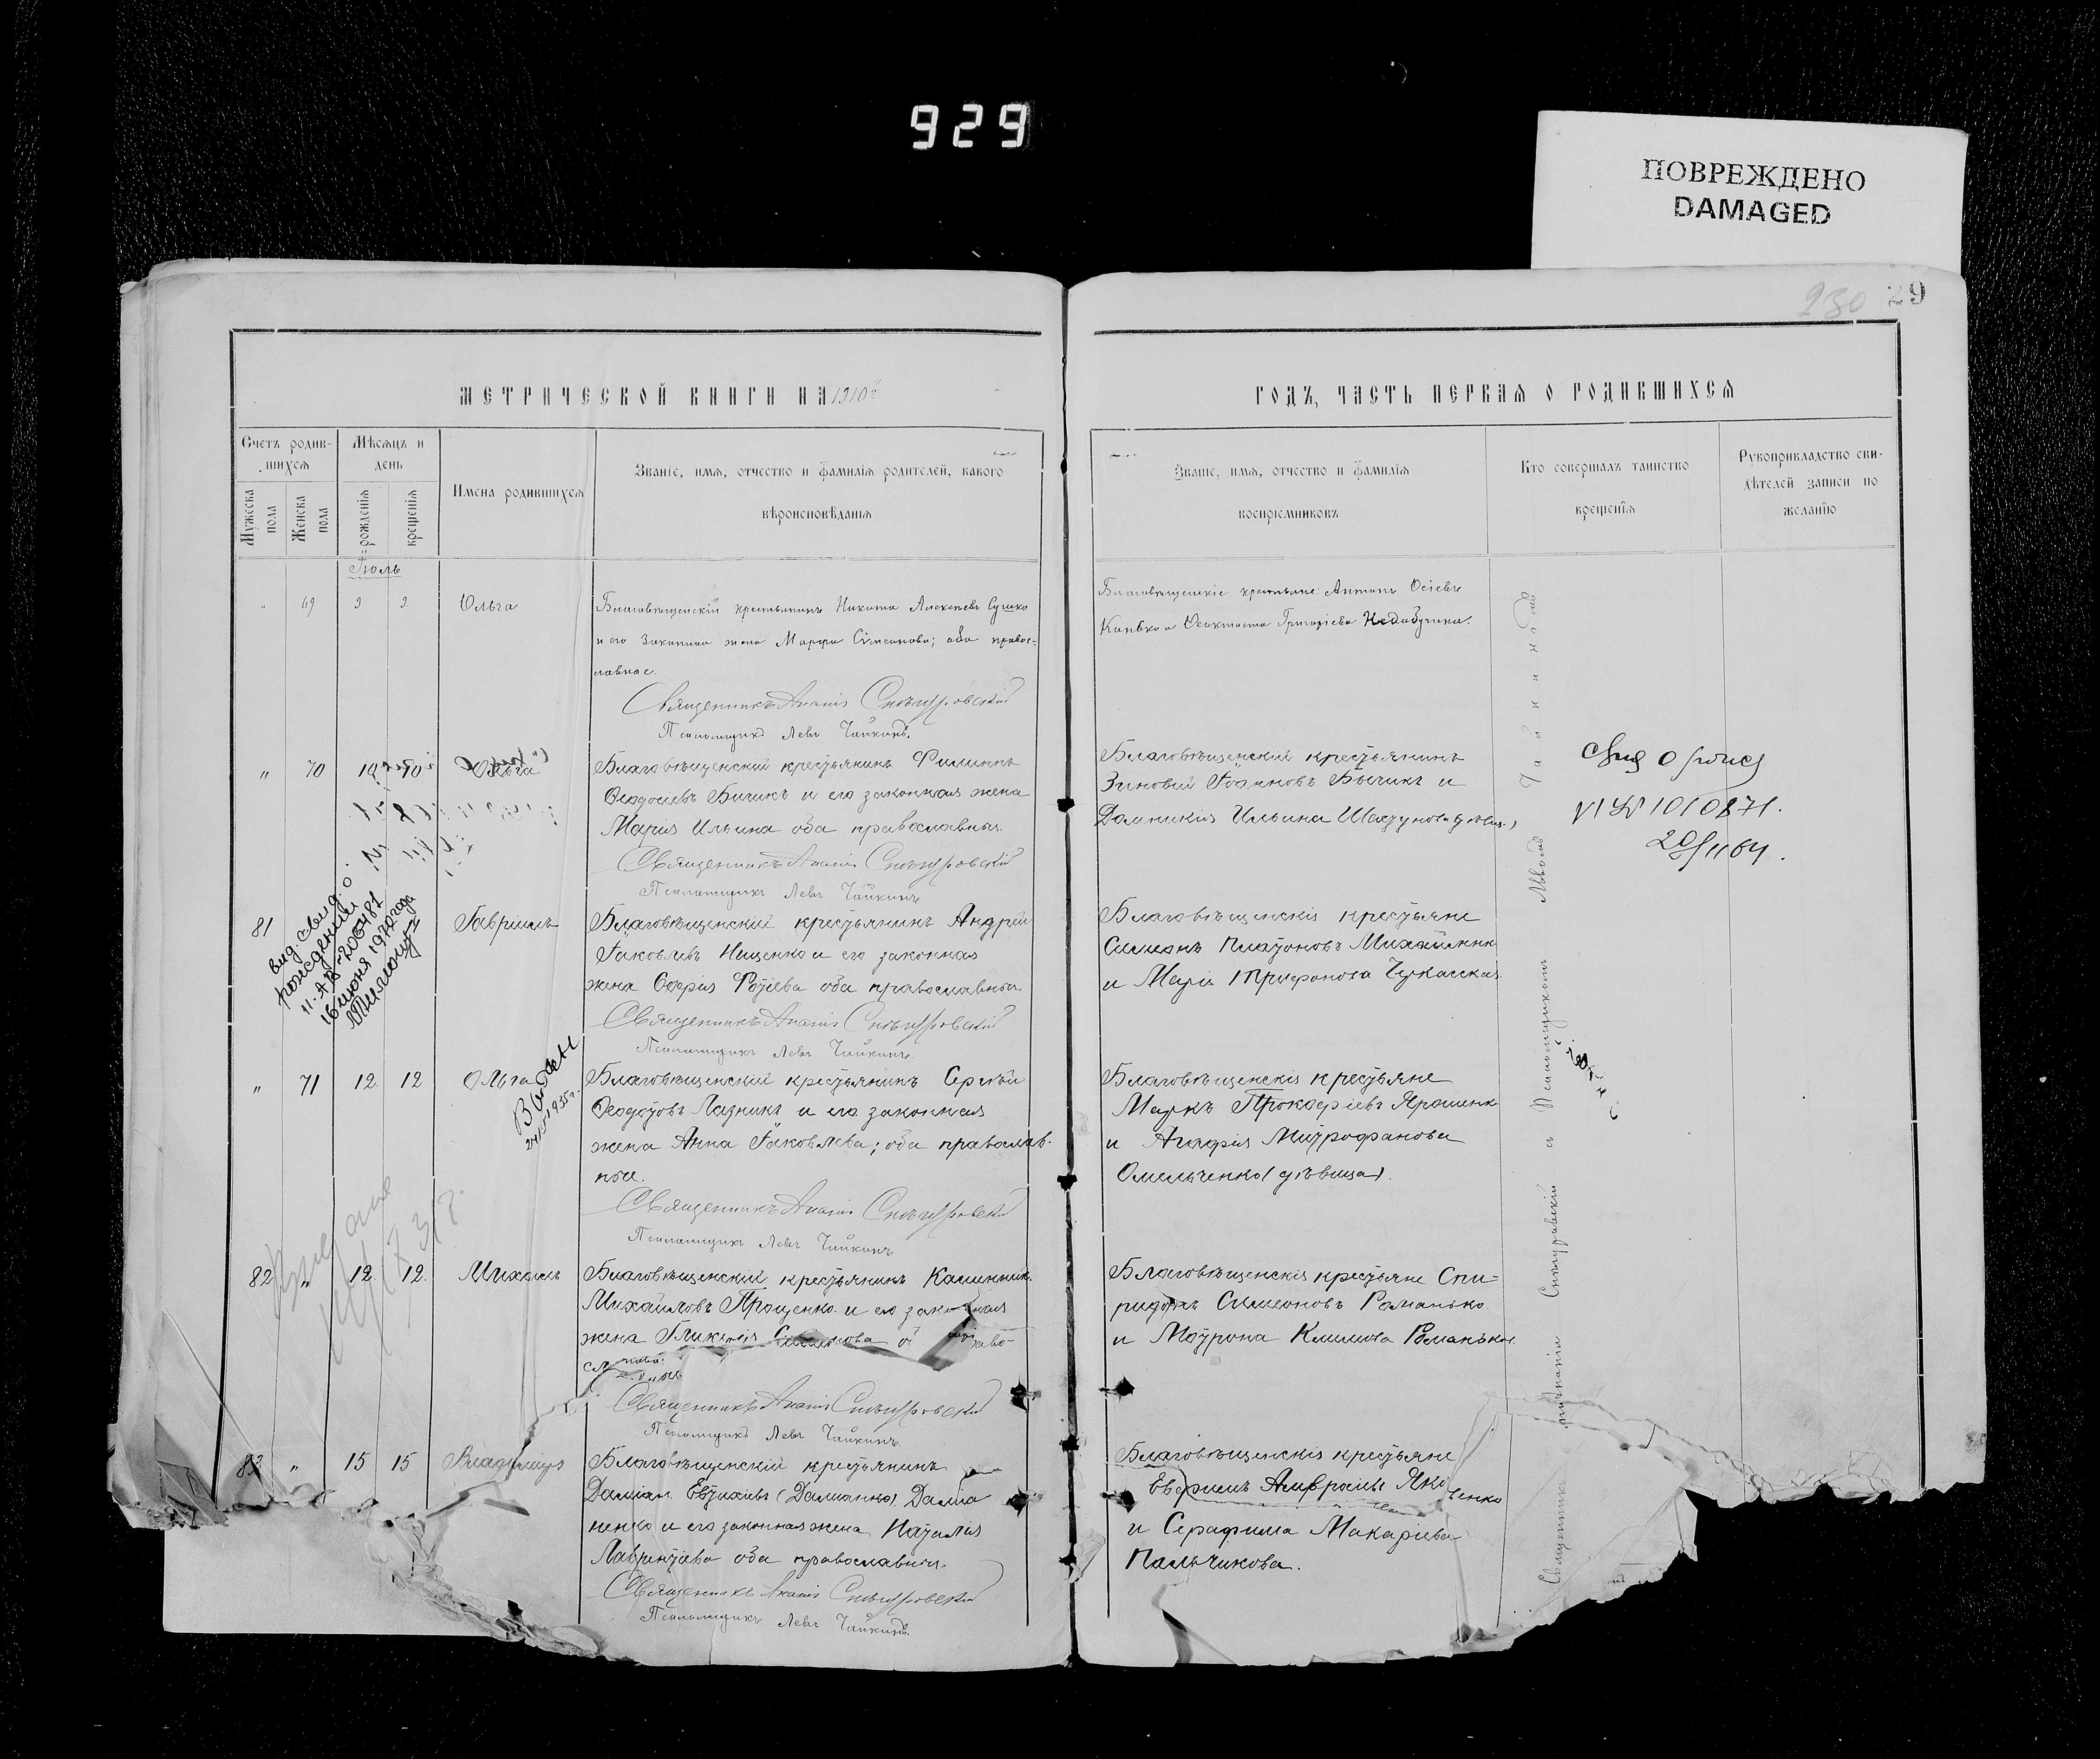 929
ПОВРЕЖДЕНО
DAMAGED
230 29
МЕТРИЧЕСКОЙ КНИГИ НА 1910й
ГОДЪ, ЧАСТЬ ПЕРВАЯ О РОДИВШИХСЯ
Счетъ родив-
шихся
Мужеска пола
Женска пола
Мѣсяцъ и
день
рожденія
крещенія
Имена родившихся
Званіе, имя, отчество и фамилія родителей, какого
вѣроисповѣданія
Званіе, имя, отчество и фамилія
воспріемниковъ
Кто совершалъ таинство
крещенія
Рукоприкладство сви-
дѣтелей записи по
желанію
Іюль
„ 69 9 9 Ольга
Благовѣщенскій крестьянинъ Никита Алексѣевъ Сушко
и его законная жена Марфа Сімеонова; оба правос-
лавные.
Священникъ Ананія Снѣгуровскій
Псаломщикъ Левъ Чайкинъ.
Благовѣщенскіе крестьяне: Антонъ Осіевъ
Канѣвко и Ѳеоктиста Григоріева
„ 70 10 10 Ольга
Благовѣщенскій крестьянинъ Филиппъ
Ѳеодосіевъ Бычикъ и его законная жена
Марія Ильина оба православные.
Священникъ Ананія Снѣгуровскій
Псаломщикъ Левъ Чайкинъ
Благовѣщенскій крестьянинъ
Зиновій Іоанновъ Бычикъ и
Домникія Ильина
1010871.
81 Гавріилъ
вид. свид. о
рождении
16 июня 1970 года
Благовѣщенскій крестьянинъ Андрей
Іаковлевъ Нищенко и его законная
жена Софія Фотіева оба православные
Священникъ Ананія Снѣгуровскій
Псаломщикъ Левъ Чайкинъ.
Благовѣщенскіе крестьяне
Симеонъ Платоновъ Михайликъ
и Марія Трифонова Черкасская
„ 71 12 12 Ольга
1955г.
Благовѣщенскій крестьянинъ Сергѣй
Ѳеодотовъ Лазникъ и его законная
жена Анна Іаковлева; оба православ-
ные.
Священникъ Ананія Снѣгуровскій
Псаломщикъ Левъ Чайкинъ
Благовѣщенскіе крестьяне
Маркъ Прокофіевъ Ярошенко
и Агафія Митрофанова
Омельченко (дѣвица).
82 „ 12 12 Михаилъ
Благовѣщенскій крестьянинъ Каллиникъ
Михайловъ Прощенко и его законная
жена Гликерія
Священникъ Ананія Снѣгуровскій
Псаломщикъ Левъ Чайкинъ.
Благовѣщенскіе крестьяне Спи-
ридонъ Симеоновъ Романько
и Матрона Климова Романько.
83 „ 15 15 Владиміръ
Благовѣщенскій крестьянинъ
Даміанъ Евтихіевъ (Даманко) Дамиа
ненко и его законная жена Наталія
Лаврентіева оба православные.
Священникъ Ананія Снѣгуровскій
Псаломщикъ Левъ Чайкинъ.
Благовѣщенскіе крестьяне
Евфимъ Амвросіевъ Яковенко
и Серафима Макаріева
Пальчикова.
Священникъ Ананія Снѣгуровскій и Псаломщикомъ Львомъ Чайкинымъ